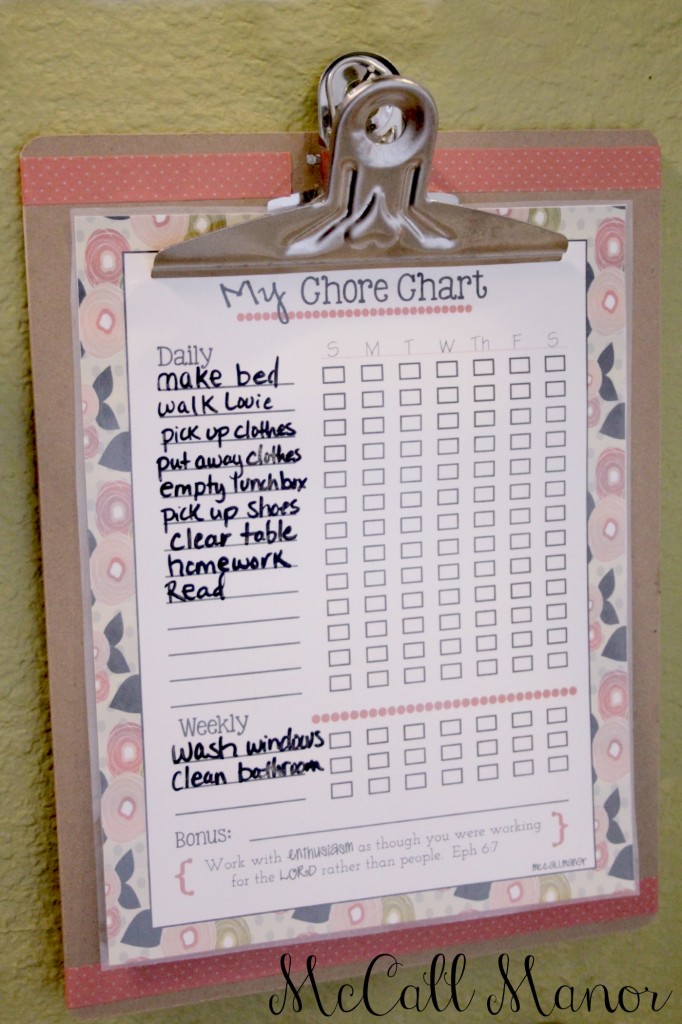 My Chore Chart
Daily
S M T W Th F S
make bed
walk Louie
pick up clothes
put away clothes
empty lunchbox
pick up shoes
clear table
homework
Read
Weekly
wash windows
clean bathroom
Bonus:
{ Work with enthusiasm as though you were working }
for the LORD rather than people. Eph 6:7
mccallmanor
McCall Manor